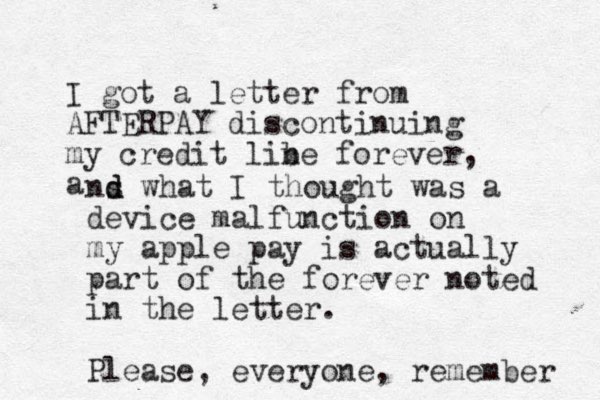 I got a letter from
AFTERPAY discontinuing
my credit line forever,
and what I thought was a
device malfunction on
my apple pay is actually
part of the forever noted
in the letter.
Please, everyone, remember